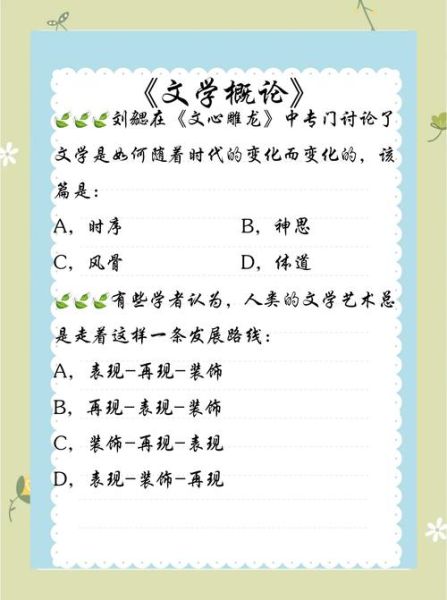 《文学概论》
刘勰在《文心雕龙》中专门讨论了
文学是如何随着时代的变化而变化的，该
篇是：
A，时序 B，神思
C，风骨 D，体道
有些学者认为，人类的文学艺术总
是走着这样一条发展路线：
A，表现-再现-装饰
B，再现-表现-装饰
C，装饰-再现-表现
D，表现-装饰-再现